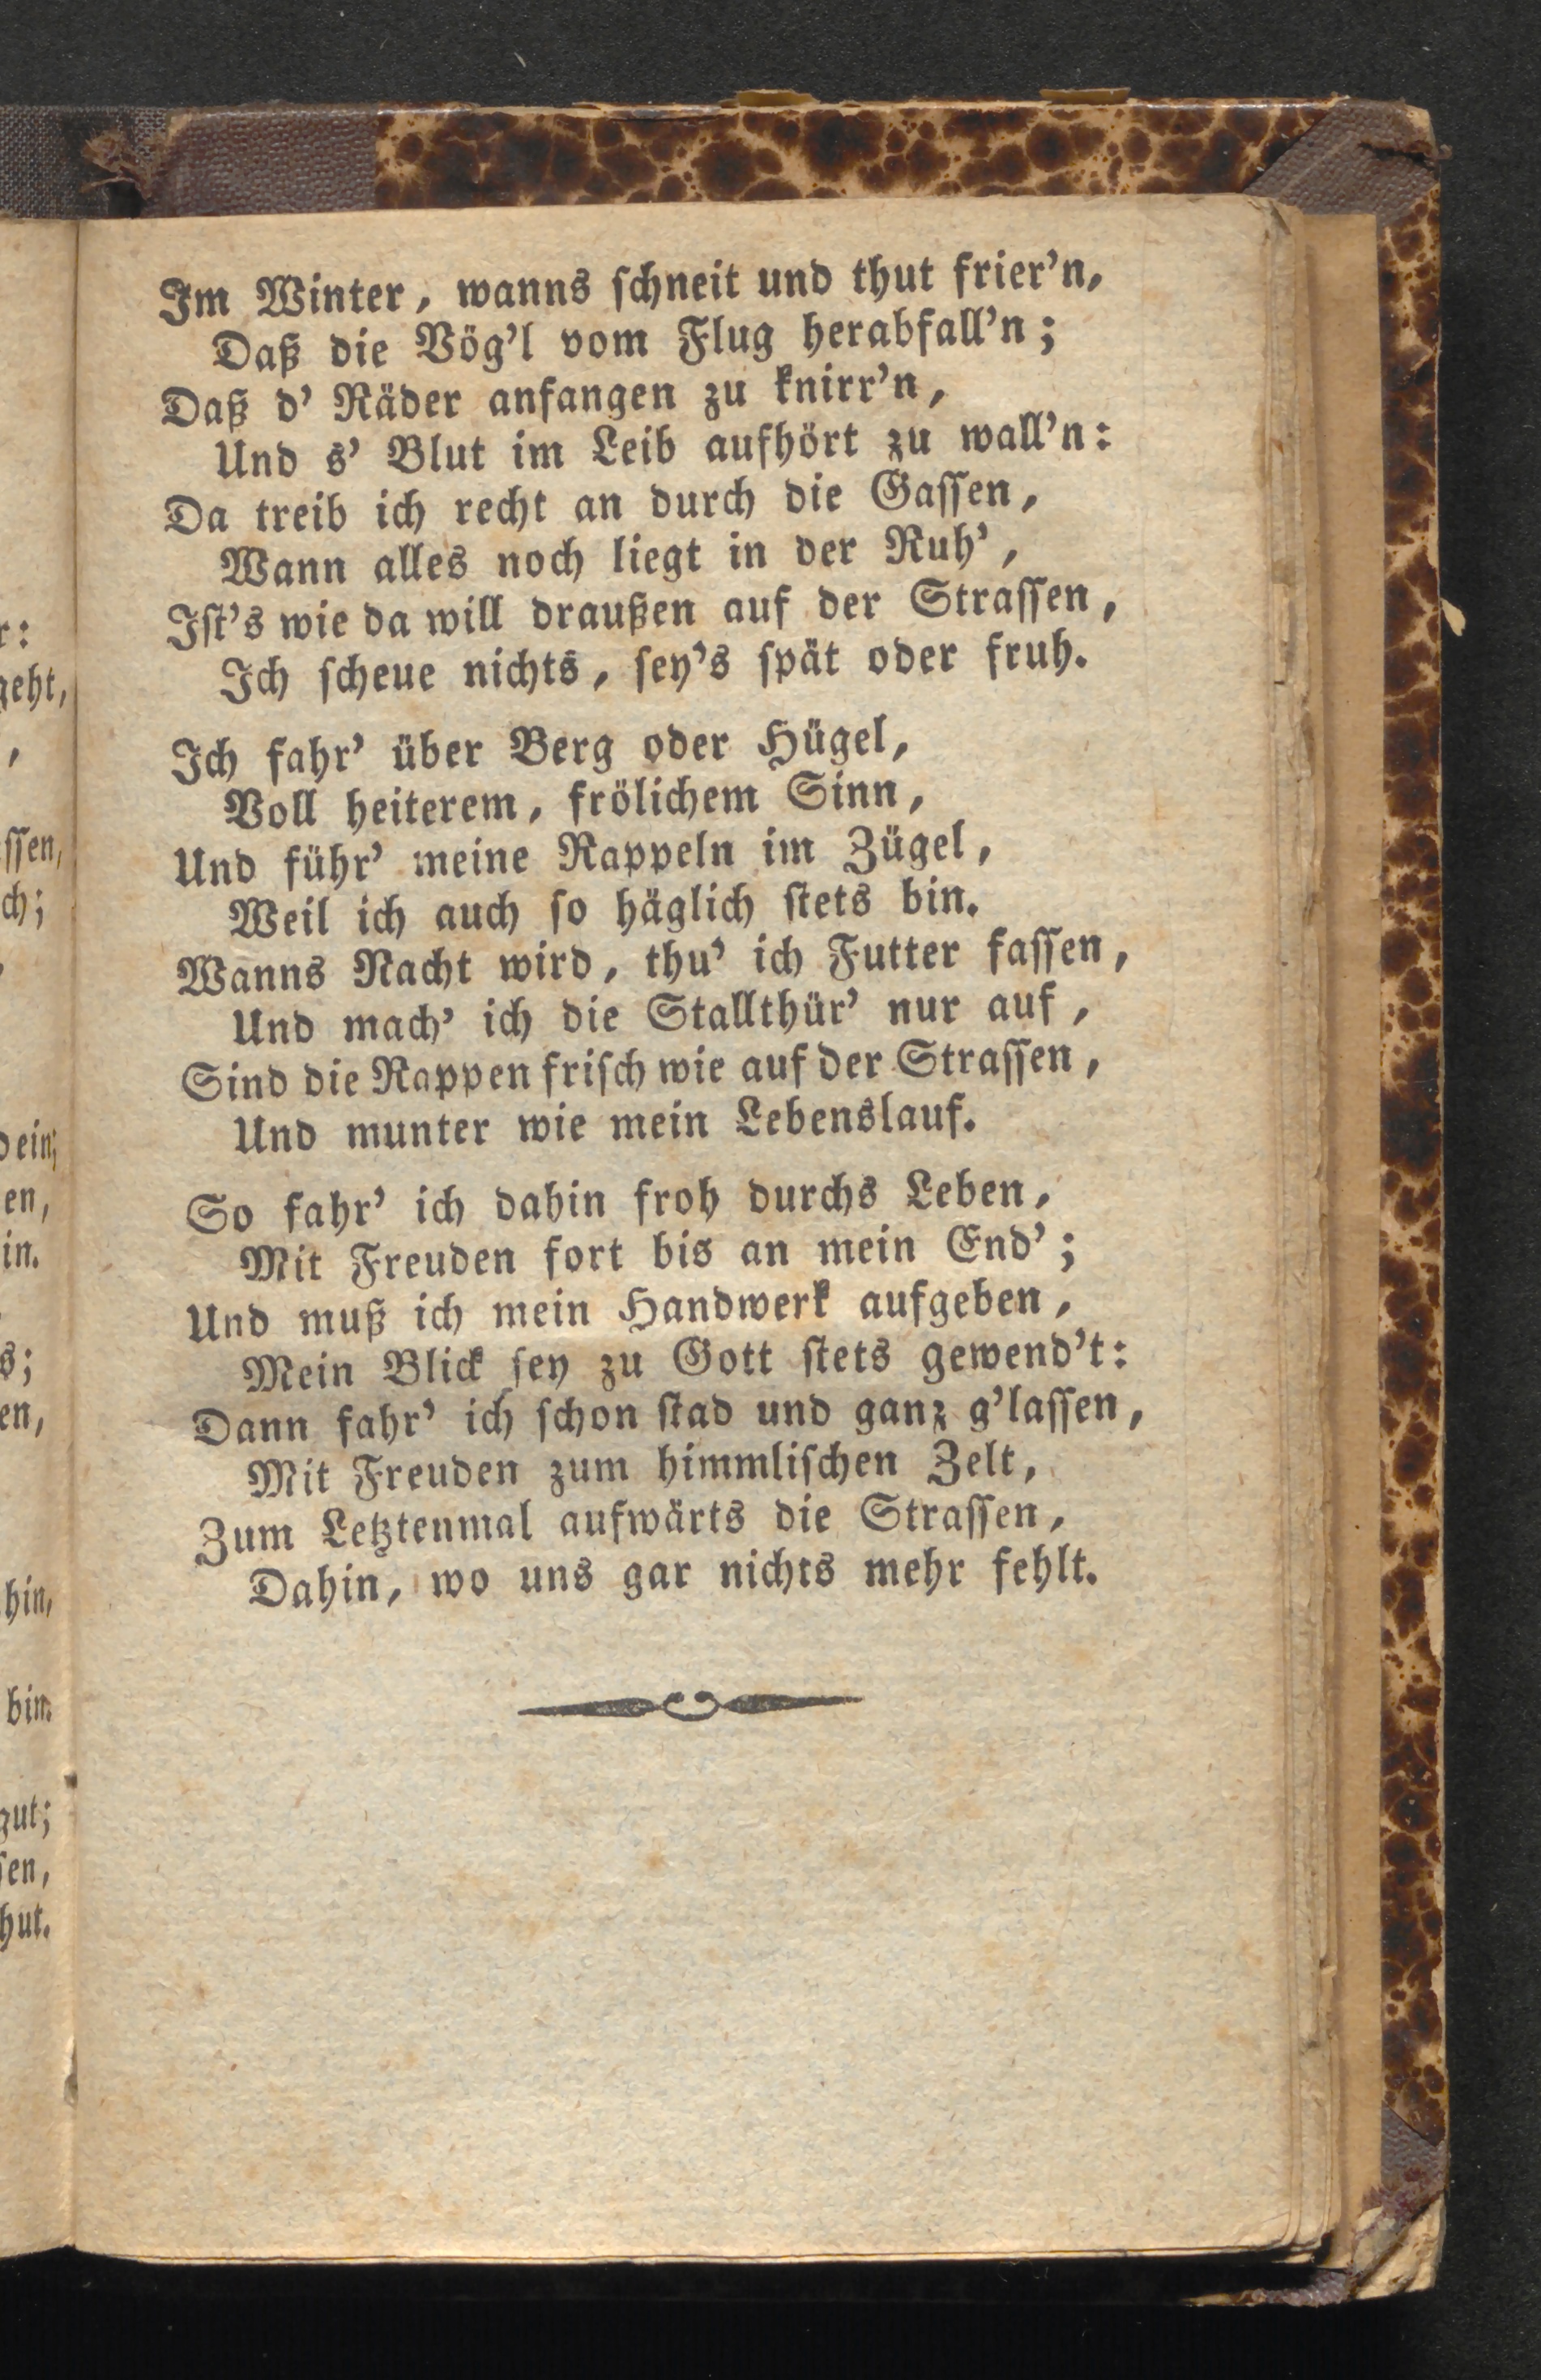 Im Winter, wanns ſchneit und thut frier’n,
Daß die Vög’l vom Flug herabfall’n;
Daß d’ Räder anfangen zu knirr’n,
Und s’ Blut im Leib aufhört zu wall’n:
Da treib ich recht an durch die Gaſſen,
Wann alles noch liegt in der Ruh’,
Iſt’s wie da will draußen auf der Straſſen,
Ich ſcheue nichts, ſey’s ſpät oder fruh.
Ich fahr’ über Berg oder Hügel,
Voll heiterem, frölichem Sinn,
Und führ’ meine Rappeln im Zügel,
Weil ich auch ſo häglich ſtets bin.
Wanns Nacht wird, thu’ ich Futter faſſen,
Und mach’ ich die Stallthür’ nur auf,
Sind die Rappen friſch wie auf der Straſſen,
Und munter wie mein Lebenslauf.
So fahr’ ich dahin froh durchs Leben,
Mit Freuden fort bis an mein End’;
Und muß ich mein Handwerk aufgeben,
Mein Blick ſey zu Gott ſtets gewend’t:
Dann fahr’ ich ſchon ſtad und ganz g’laſſen,
Mit Freuden zum himmliſchen Zelt,
Zum Letztenmal aufwärts die Straſſen,
Dahin, wo uns gar nichts mehr fehlt.